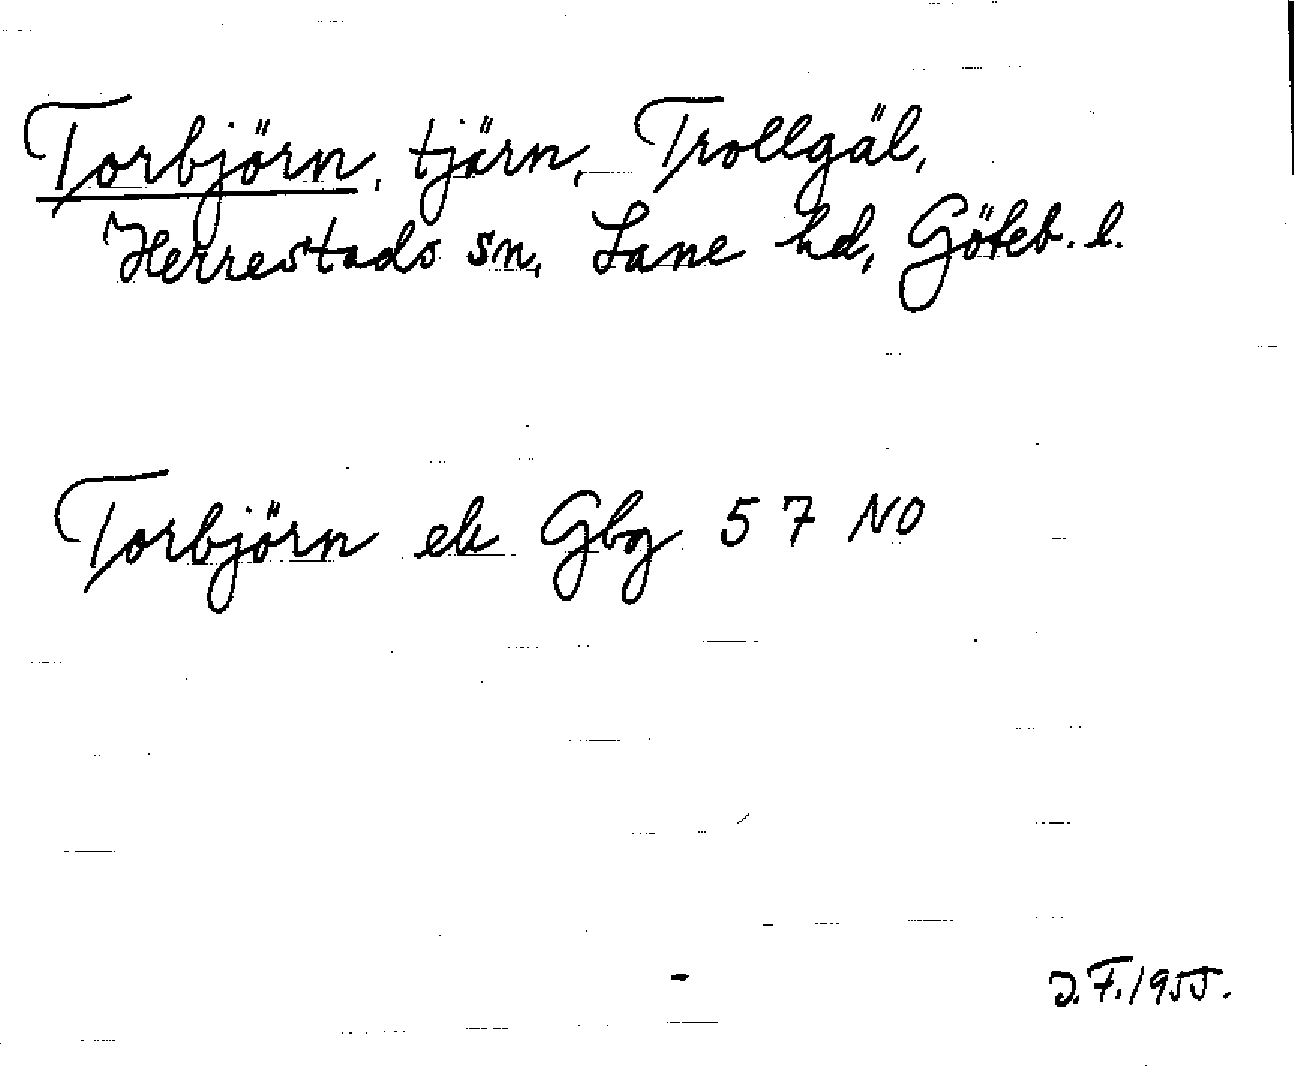 Torbjörn, tjärn, Trollgäl,
Herrestads sn, Lane hd, Göteb. l.
Torbjörn ek Gbg 57 NO
J.F. 1955.